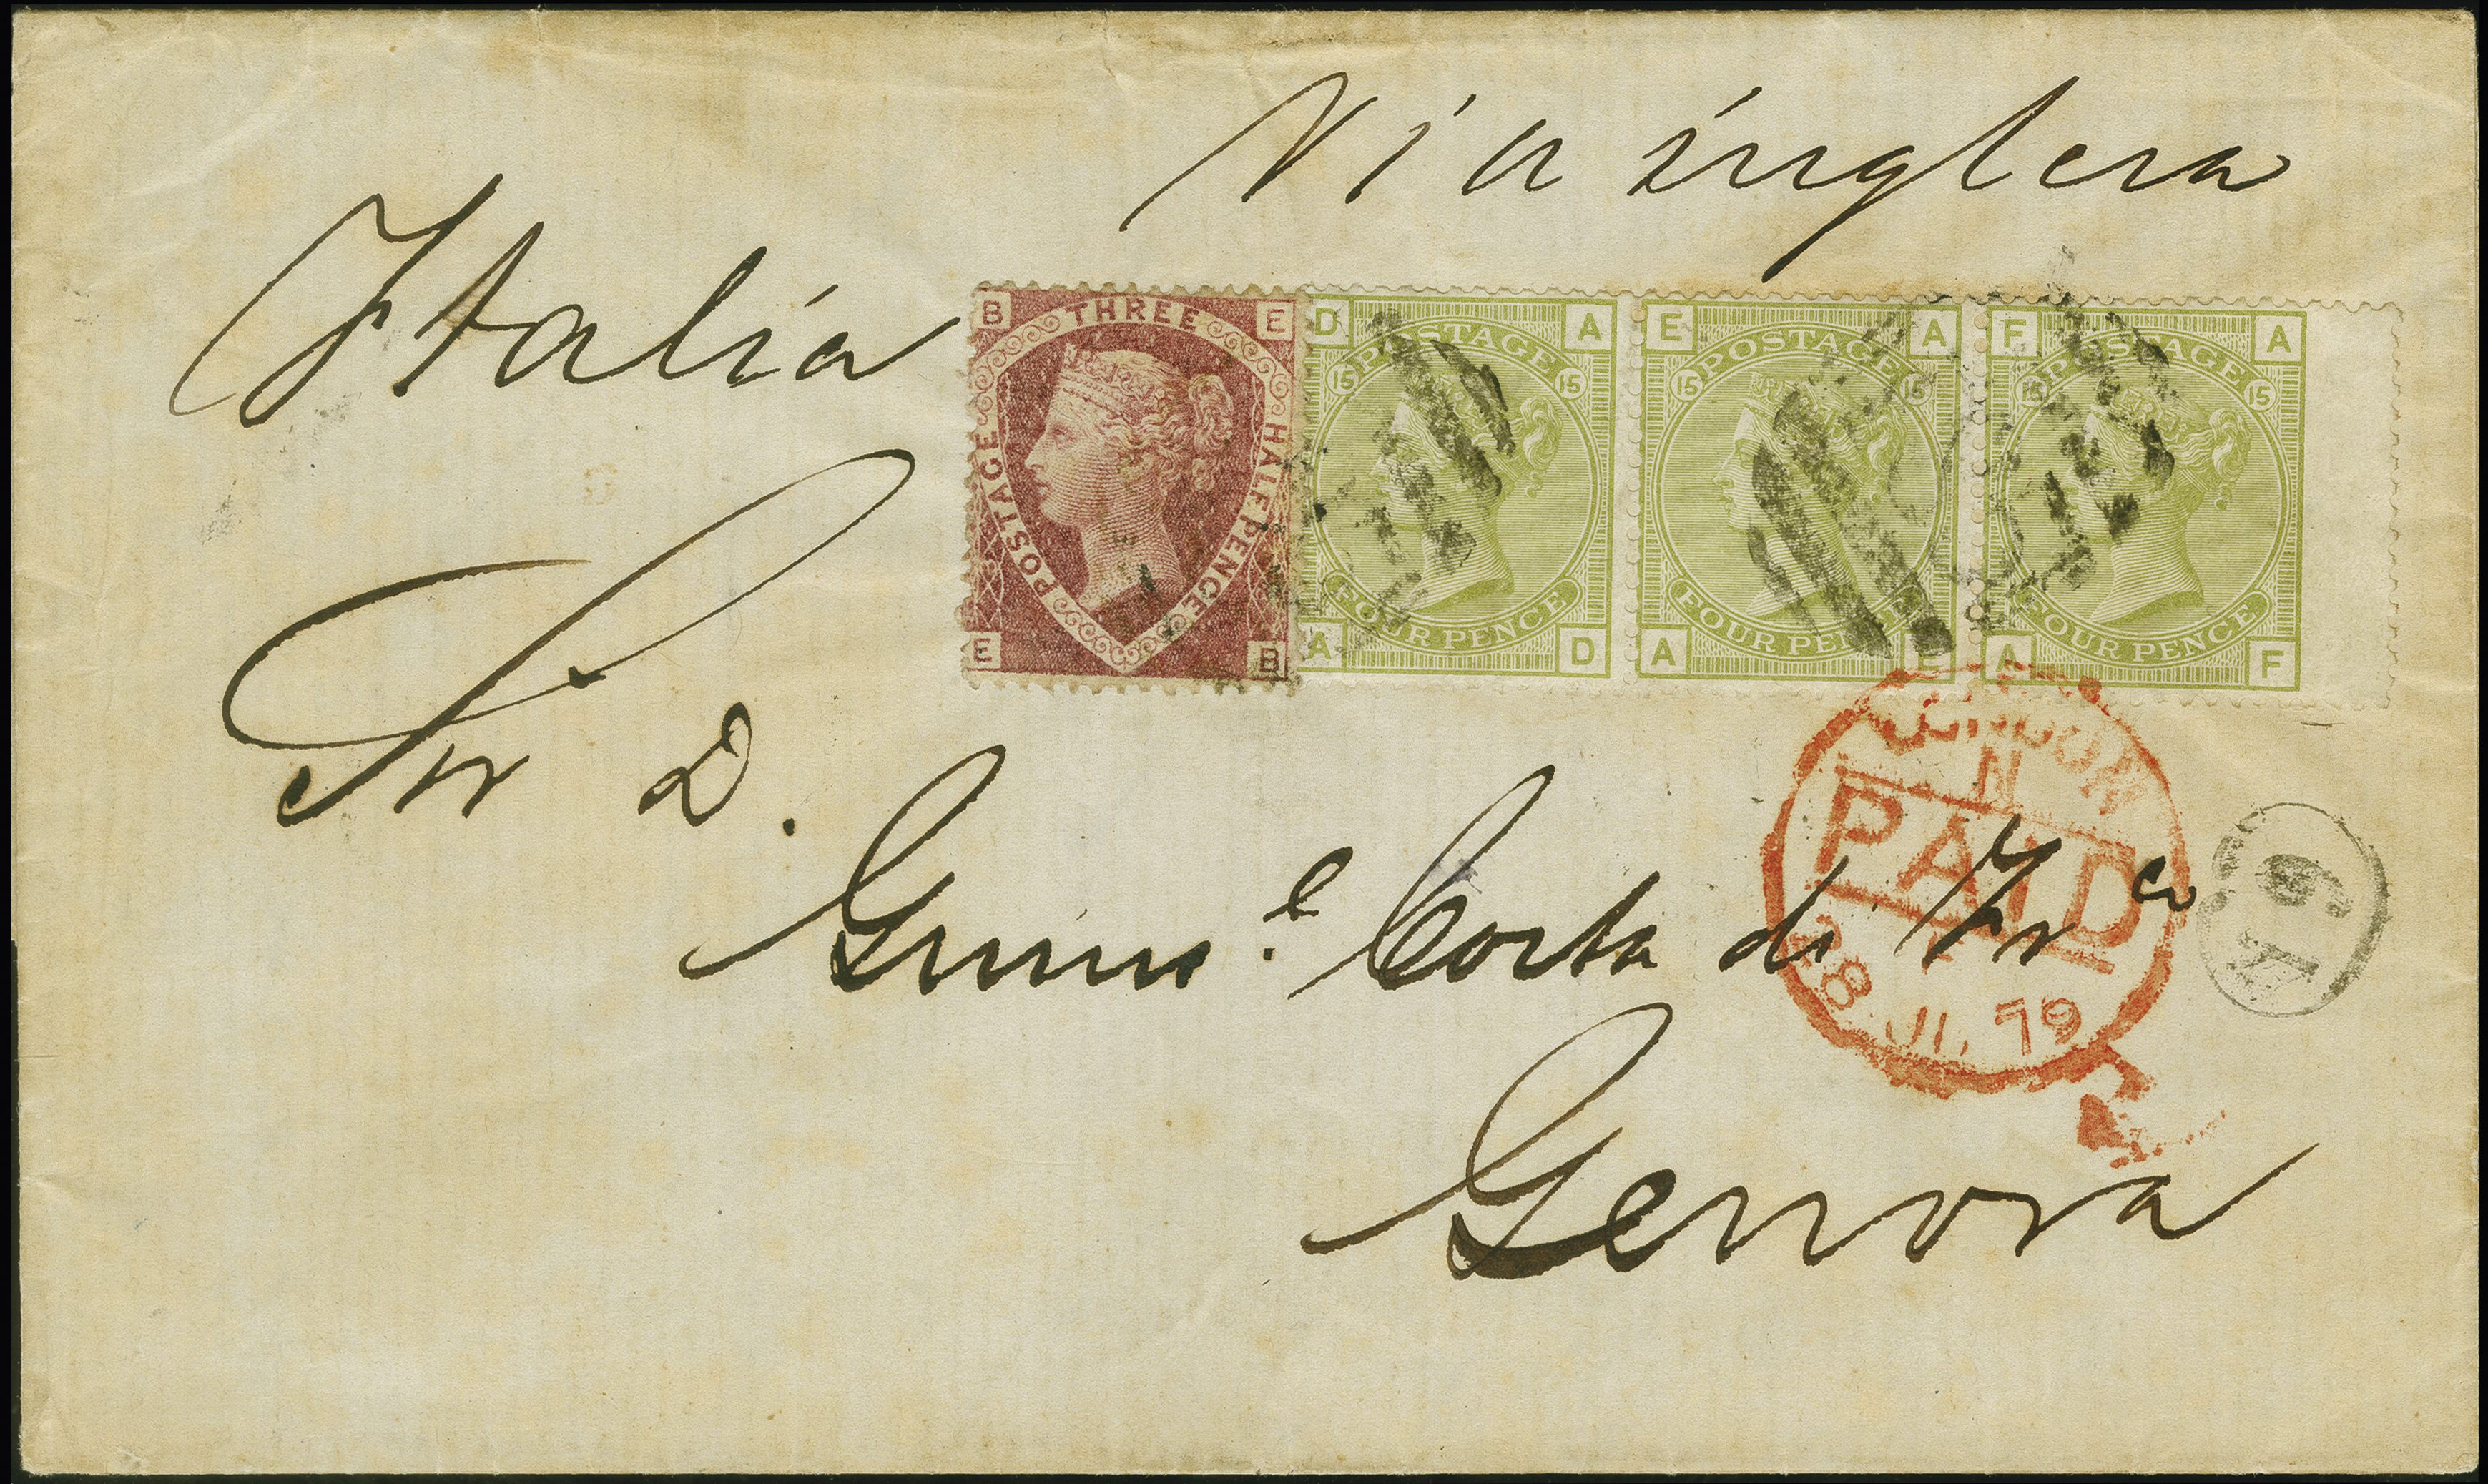 Via inglesa
Italia
B THREE E
HALFPENCE
POSTAGE
E B
D POSTAGE A
15 15
FOUR PENCE
A D
E POSTAGE A
15 15
FOUR PENCE
A E
F POSTAGE A
15 15
FOUR PENCE
A F
Sr D.
LONDON
N
PAID
28 JL 79
Costa di Fr co
Genova